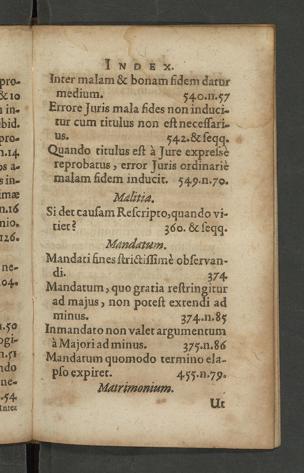 INDEX.
Inter malam & bonam fidem datur
medium. 540.n.57
Errore Juris mala fides non induci-
tur cum titulus non est necessari-
us. 542.&seqq.
Quando titulus est à Jure expresse
reprobatus, error Juris ordinariè
malam fidem inducit. 549.n.70.
Malitia.
Si det causam Rescripto, quando vi-
tiet? 360. & seqq.
Mandatum.
Mandati fines strictissimè observan-
di. 374
Mandatum, quo gratia restringitur
ad majus, non potest extendi ad
minus. 374.n.85
In mandato non valet argumentum
à Majori ad minus. 375.n.86
Mandatum quomodo termino ela-
pso expiret. 455.n.79.
Matrimonium.
Ut
pro-
& 10
in-
ibid.
pro-
n.14
os a-
s in-
imæ
n.16
nio.
126.
ne-
04.
1.50
ogi-
n.51
ndo
ne-
.54
Inter